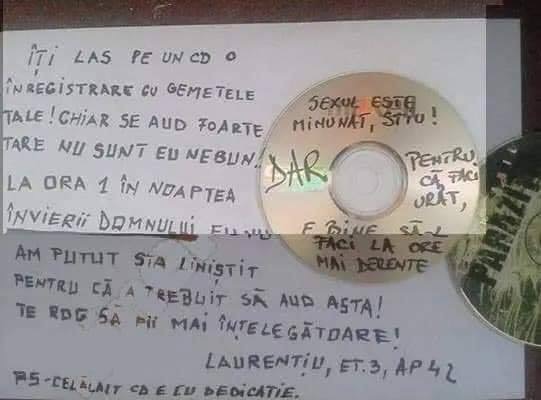 ÎȚI LAS PE UN CD O
ÎNREGISTRARE CU GEMETELE
TALE! CHIAR SE AUD FOARTE
TARE NU SUNT EU NEBUN!
LA ORA 1 ÎN NOAPTEA
ÎNVIERII DOMNULUI EU NU
AM PUTUT STA LINIȘTIT
PENTRU CĂ A TREBUIT SĂ AUD ASTA!
TE ROG SĂ FII MAI ÎNȚELEGĂTOARE!
LAURENȚIU, ET.3, AP 42
PS-CELĂLALT CD E CU DEDICAȚIE.
SEXUL ESTE
MINUNAT, ȘTIU!
DAR
PENTRU
CĂ FACI
URÂT,
E BINE SĂ-L
FACI LA ORE
MAI DECENTE
PARAZIȚII